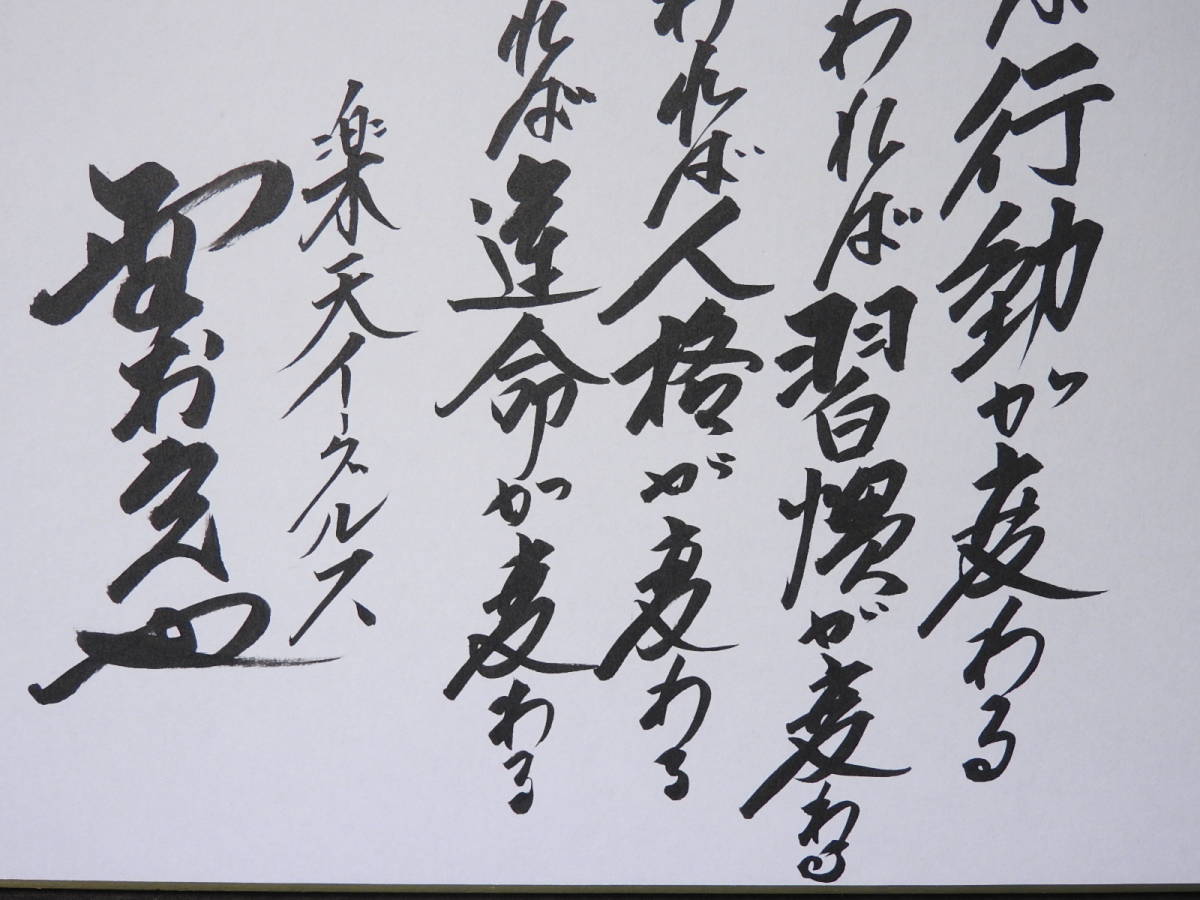 行動が変わる
われば習慣が変わる
われば人格が変わる
れば運命が変わる
楽天イーグルス
野村克也